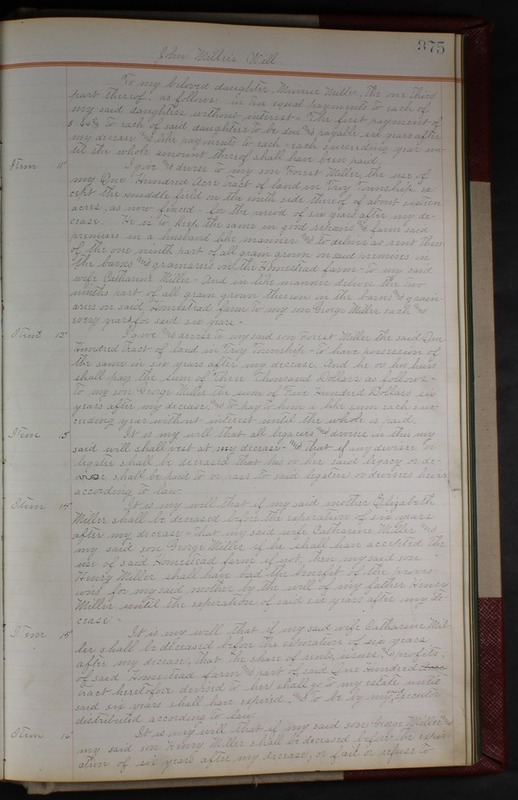 375
John Miller's Will
To my beloved daughter, Minnie Miller, the one third
part thereof: as follows in six equal payments to each of
my said daughters without interest - The first payment of
to each of said daughters to be due & payable six years after
my decease & like payments to each - each succeeding year un-
til the whole amount thereof shall have been paid.
Item 11" I give & devise to my son Forest Miller, the use of
my One Hundred Acre tract of land in Troy Township ex-
cept the middle field on the north side thereof of about sixteen
acres, as now fenced - for the period of six years after my de-
cease. He is to keep the same in good repair & farm said
premises in a husband like manner & to deliver as rent thereof
of the one ninth part of all grain grown on said premises in
the barns and graineries on the Homestead farm - to my said
wife Catharine Miller - And in like manner deliver the two
ninths part of all grain grown thereon in the barns & grain-
aries on said Homestead farm to my son George Miller each &
every year for said six years.
Item 12" I give & devise to my said son Forest Miller the said One
Hundred tract of land in Troy Township - to have possession of
the same in six years after my decease. And he or his heirs
shall pay the sum of Three Thousand Dollars as follows -
to my son George Miller the sum of Five Hundred Dollars six
years after my decease, & to pay to him a like sum each suc-
ceeding year without interest until the whole is paid.
Item It is my will that all legacies & devise in this my
said will shall vest at my decease - & that if any devisee or
legatee shall be deceased that his or her said legacy or de-
vise shall be had to or pass to said legatees or devisees heirs
according to law.
Item 14" It is my will that if my said mother Elizabeth
Miller shall be deceased before the expiration of six years
after my decease - that my said wife Catharine Miller &
my said son George Miller, if he shall have accepted the
use of said Homestead farm if not, then my said son
Henry Miller shall have had the benefit of the provis-
ions for my said mother by the will of my father Henry
Miller until the expiration of said six years after my de-
cease -
Item 15" It is my will that if my said wife Catharine Mil-
ler shall be deceased before the expiration of six years
after my decease, that the share of rents, issues, & profits,
of said Homestead farm & part of said One Hundred
tract heretofore devised to her shall go to my estate until
said six years shall have expired, & to be by my executor
distributed according to law.
Item It is my will that if my said son George Miller &
my said son Henry Miller shall be deceased before the expir-
ation of six years after my decease, or fail or refuse to